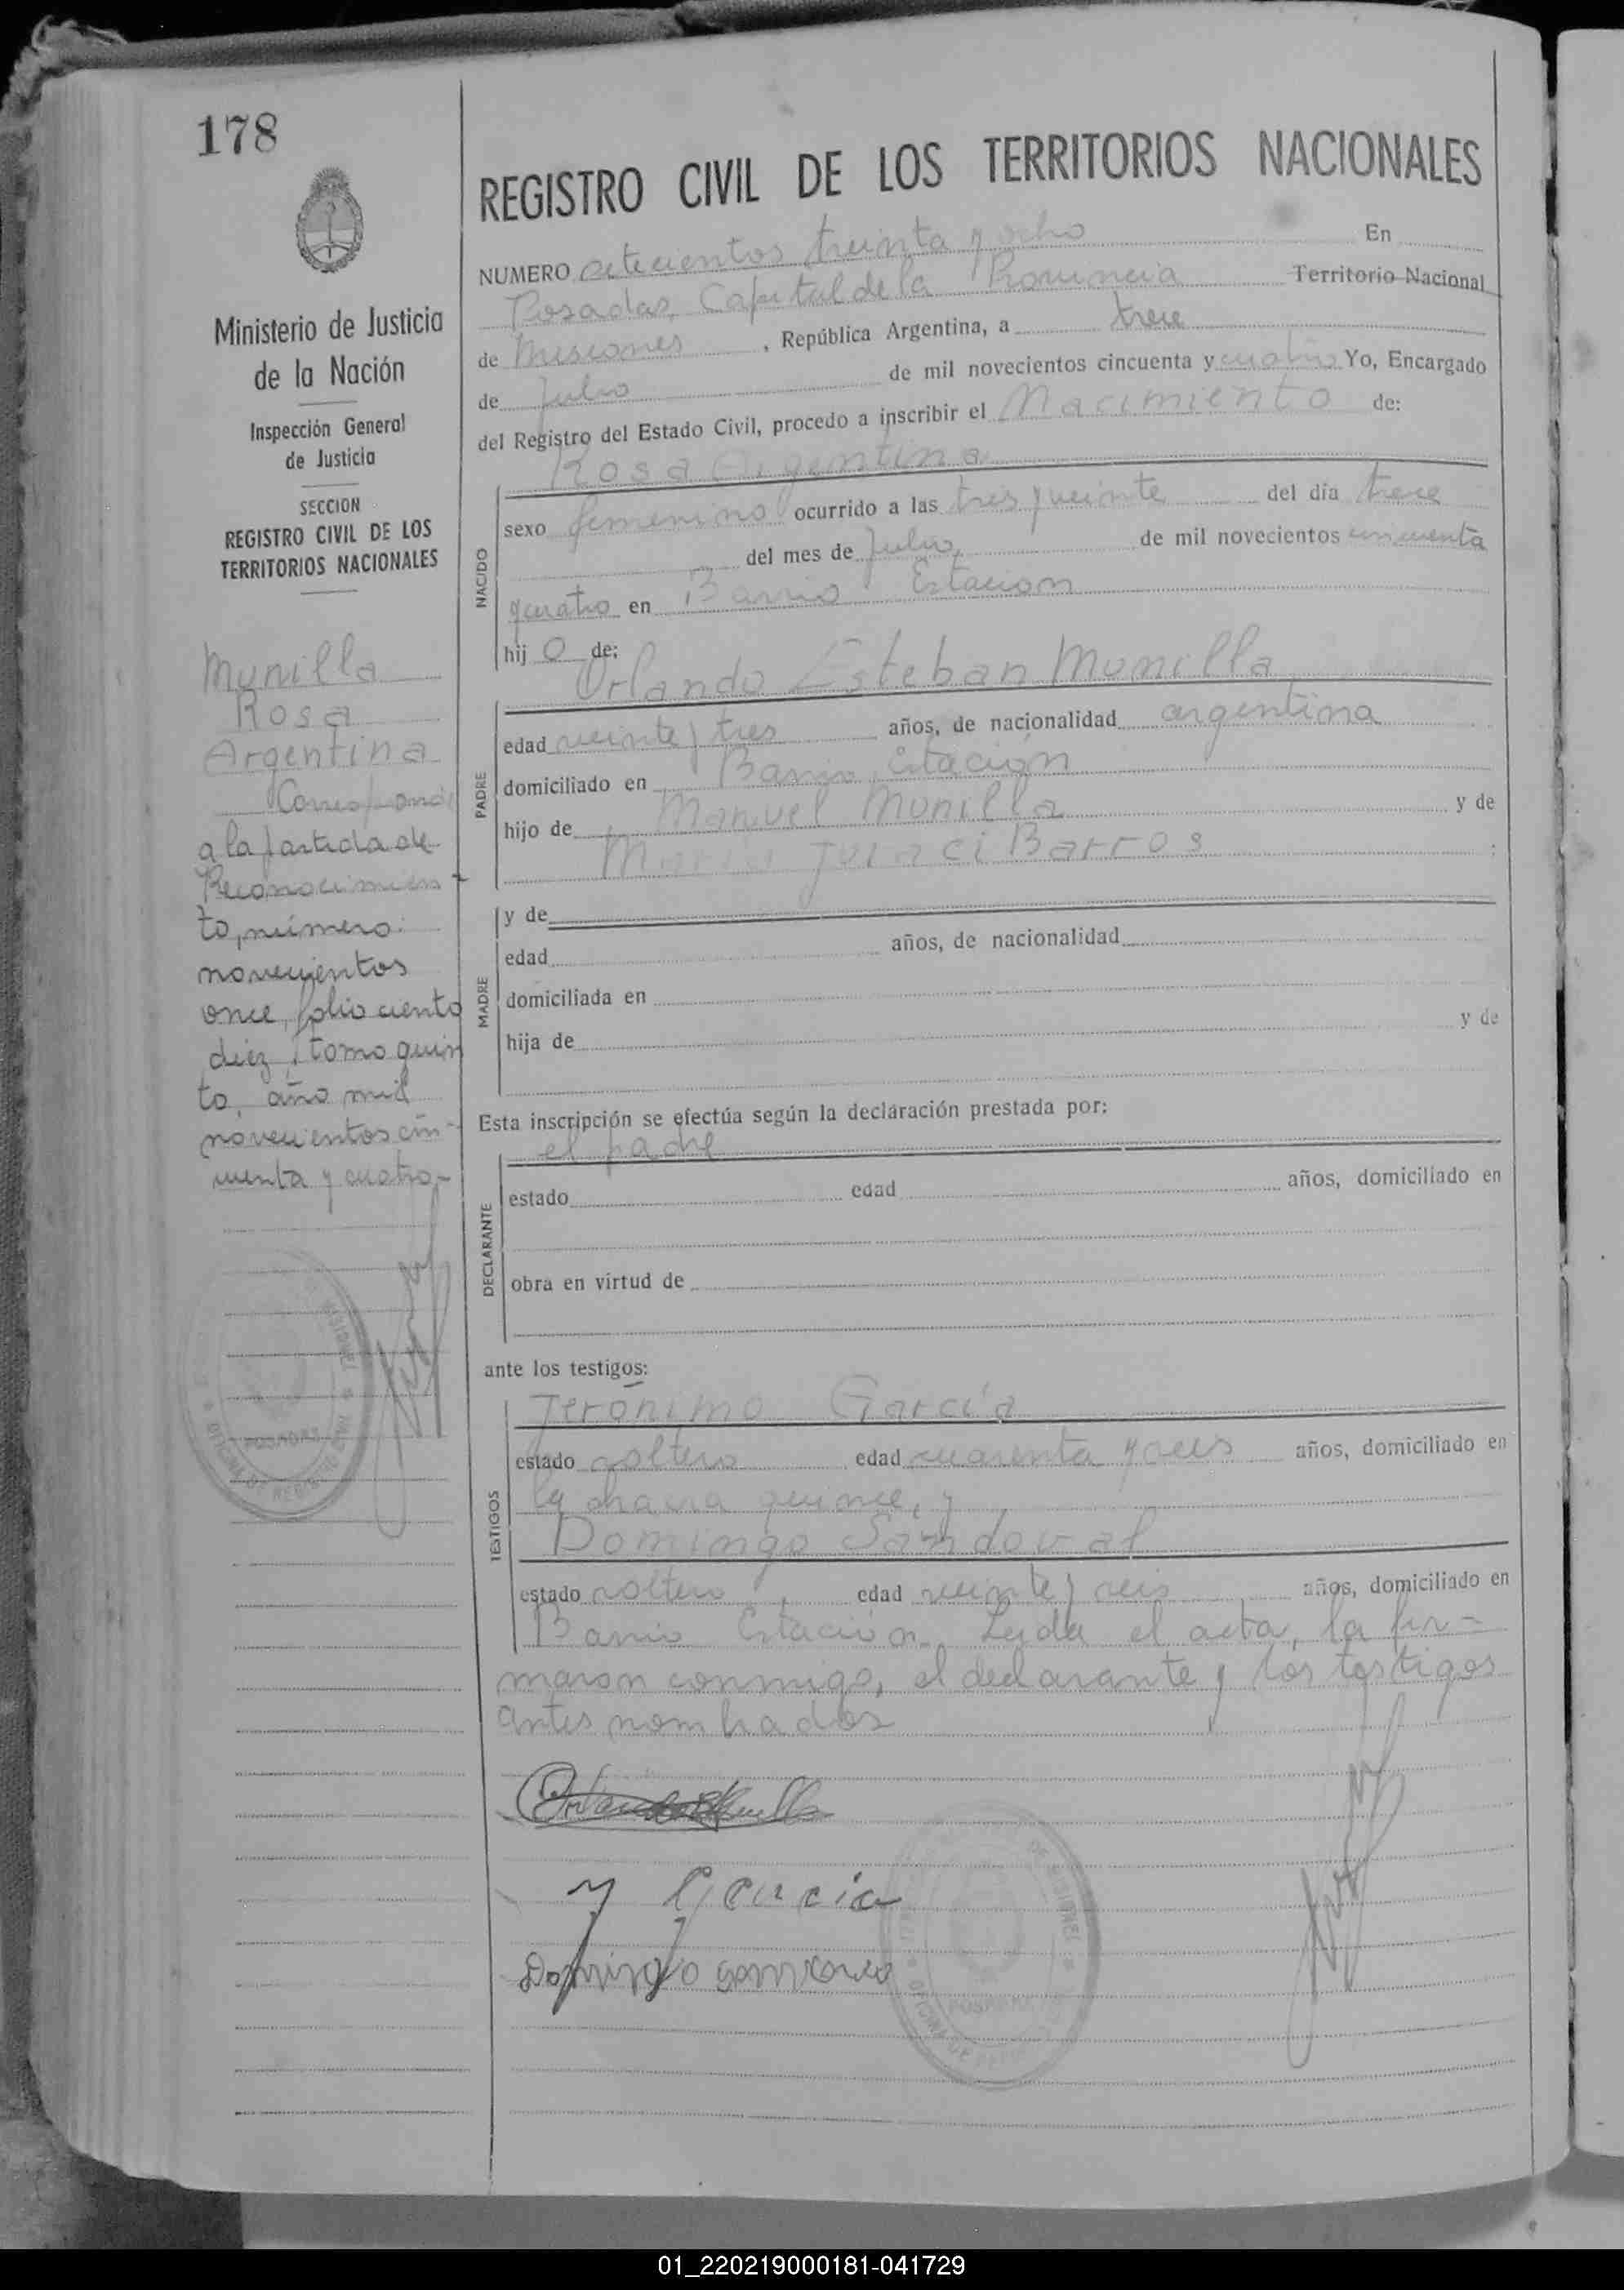 178
Ministerio de Justicia
de la Nación
Inspección General
de Justicia
SECCION
REGISTRO CIVIL DE LOS
TERRITORIOS NACIONALES
Munilla
Rosa
Argentina
a la partida de
Reconocimien
to, número:
novecientos
once, folio ciento
diez, tomo quin
to, año mil
novecientos cin-
cuenta y cuatro-
POSADAS
REGISTRO CIVIL DE LOS TERRITORIOS NACIONALES
NUMERO setecientos treinta y ocho En
Posadas, Capital de la Provincia Territorio Nacional
de Misiones, República Argentina, a trece
de Julio de mil novecientos cincuenta y cuatro Yo, Encargado
del Registro del Estado Civil, procedo a inscribir el Nacimiento de:
Rosa Argentina
NACIDO
sexo femenino ocurrido a las tres y veinte del día trece
del mes de Julio, de mil novecientos cincuenta
y cuatro en Barrio Estacion
hij o de;
Orlando Esteban Munilla
PADRE
edad veinte y tres años, de nacionalidad argentina
domiciliado en Barrio Estación
hijo de Manuel Munilla y de
Maria Barros ;
y de
MADRE
edad años, de nacionalidad
domiciliada en
hija de y de
Esta inscripción se efectúa según la declaración prestada por:
el padre
DECLARANTE
estado edad años, domiciliado en
obra en virtud de
ante los testigos:
Jerónimo García
TESTIGOS
estado soltero edad cuarenta y seis años, domiciliado en
la chacra quince, y
Domingo Sandoval
estado soltero, edad veinte y seis años, domiciliado en
Barrio Estación. Leida el acta, la fir=
maron conmigo, el declarante y los testigos
antes nombrados
J Garcia
Domingo
POSADAS
01_220219000181-041729